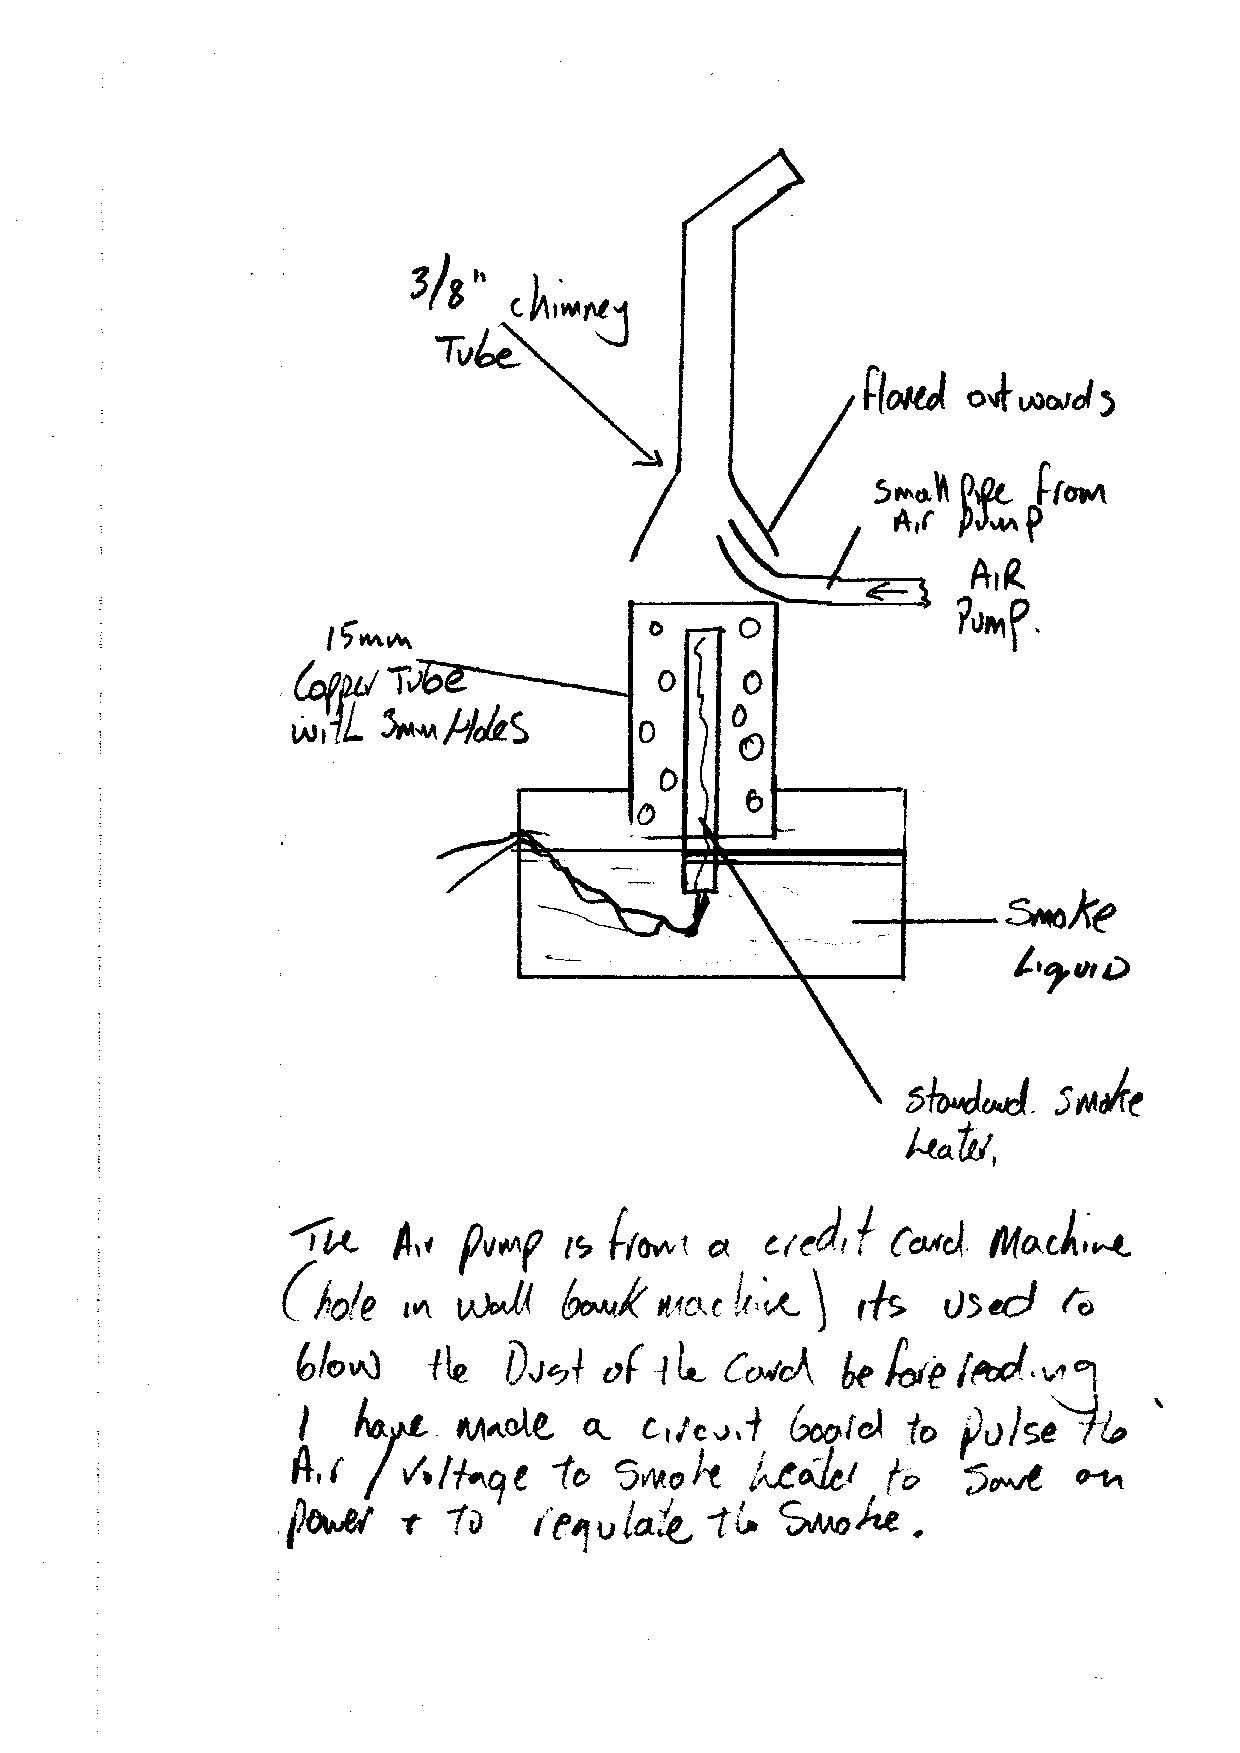 3/8" chimney
Tube
flared outwards
small pipe from
Air pump
AIR
Pump.
15mm
Copper Tube
with 3mm Holes
Smoke
Liquid
standard. smoke
heater,
The Air pump is from a credit card Machine
(hole in wall bank machine) its used to
blow the Dust of the Card before reading
I have made a circuit board to pulse the
Air / Voltage to smoke heater to save on
power + to regulate the smoke.